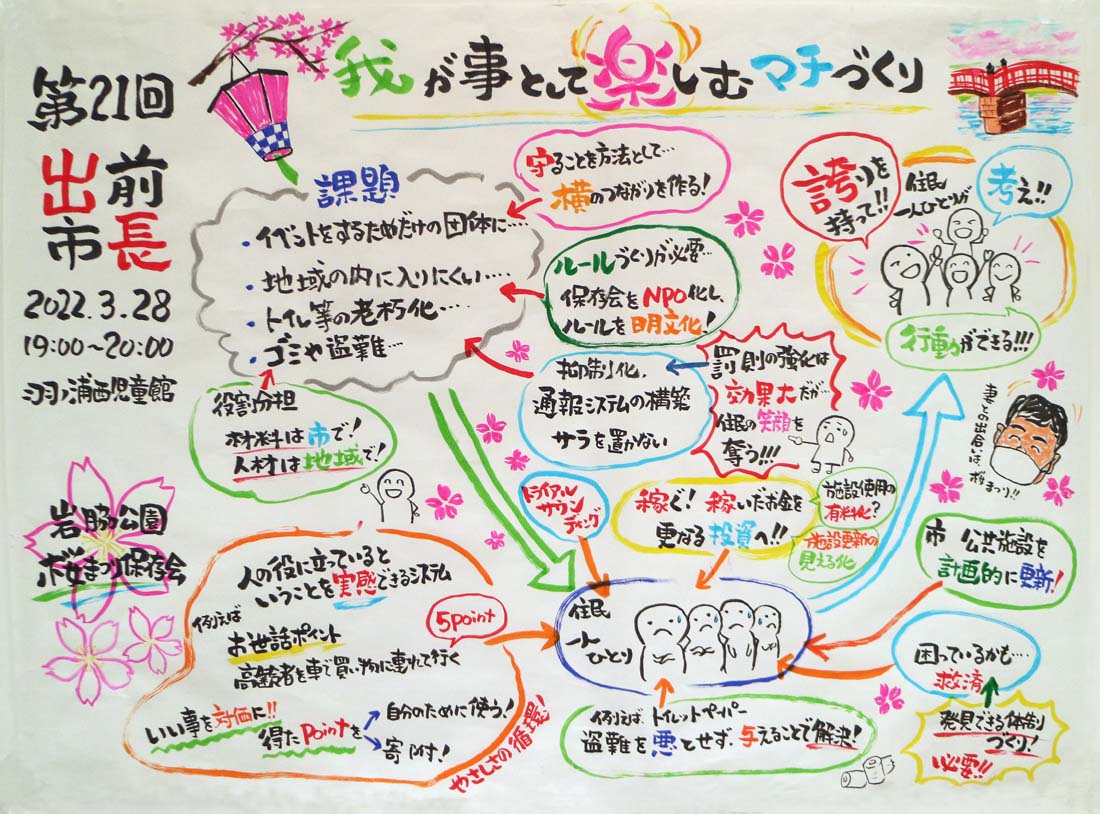 我が事として楽しむマチづくり
第21回
出前
市長
2022.3.28
19:00〜20:00
羽ノ浦西児童館
岩脇公園
桜まつり保存会
課題
・イベントをするためだけの団体に‥‥
・地域の内に入りにくい‥‥
・トイレ等の老朽化‥‥
・ゴミや盗難‥‥
守ることを方法として‥‥
横のつながりを作る!
ルールづくりが必要‥‥
保存会をNPO化し、
ルールを明文化!
抑制化、
通報システムの構築
サラを置かない
罰則の強化は
効果大だが‥‥
住民の笑顔を
奪う!!!
役割分担
材料は市で!
人材は地域で!
誇りを
持って!!
住民
一人ひとりが
考え!!
行動ができる!!!
妻との出合いは、
桜まつり!!
トライアル
サウン
ディング
稼ぐ! 稼いだお金を
更なる投資へ!!
施設使用の
有料化?
施設更新の
見える化
市 公共施設を
計画的に更新!
人の役に立っていると
いうことを実感できるシステム
例えば
お世話ポイント
5point
高齢者を車で買い物に連れて行く
いい事を対価に!!
得たPointを
自分のために使う!
寄附!
やさしさの循環!
住民
一人
ひとり
例えば トイレットペーパー
盗難を悪とせず、与えることで解決!
困っているかも‥‥
救済
発見できる体制
づくり!
必要!!